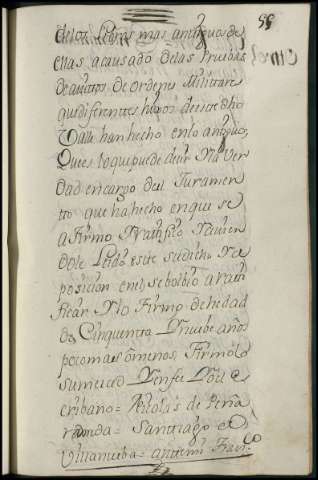 55
de los Libros mas antiguos de
ellas a causado de las Pruebas
de auitos de ordenes Militares
que diferentes hijos de este dho
Valle han hecho en lo antiguo,
Que es lo que puede decir Y la ver
dad en cargo del Juramen
to que ha hecho en que se
afirmo Y Ratifico Y auien
dole Leido este su dicho Y de
posicion en el se bolbio a rati
ficar Y lo firmo de hedad
de Cinquenta Y nuebe años
poco mas o menos, firmolo
su merced Y en fee Yo el es
cribano = Nicolas de Peña
rredonda = Santiago de
Villanueba = ante mi Fran.co